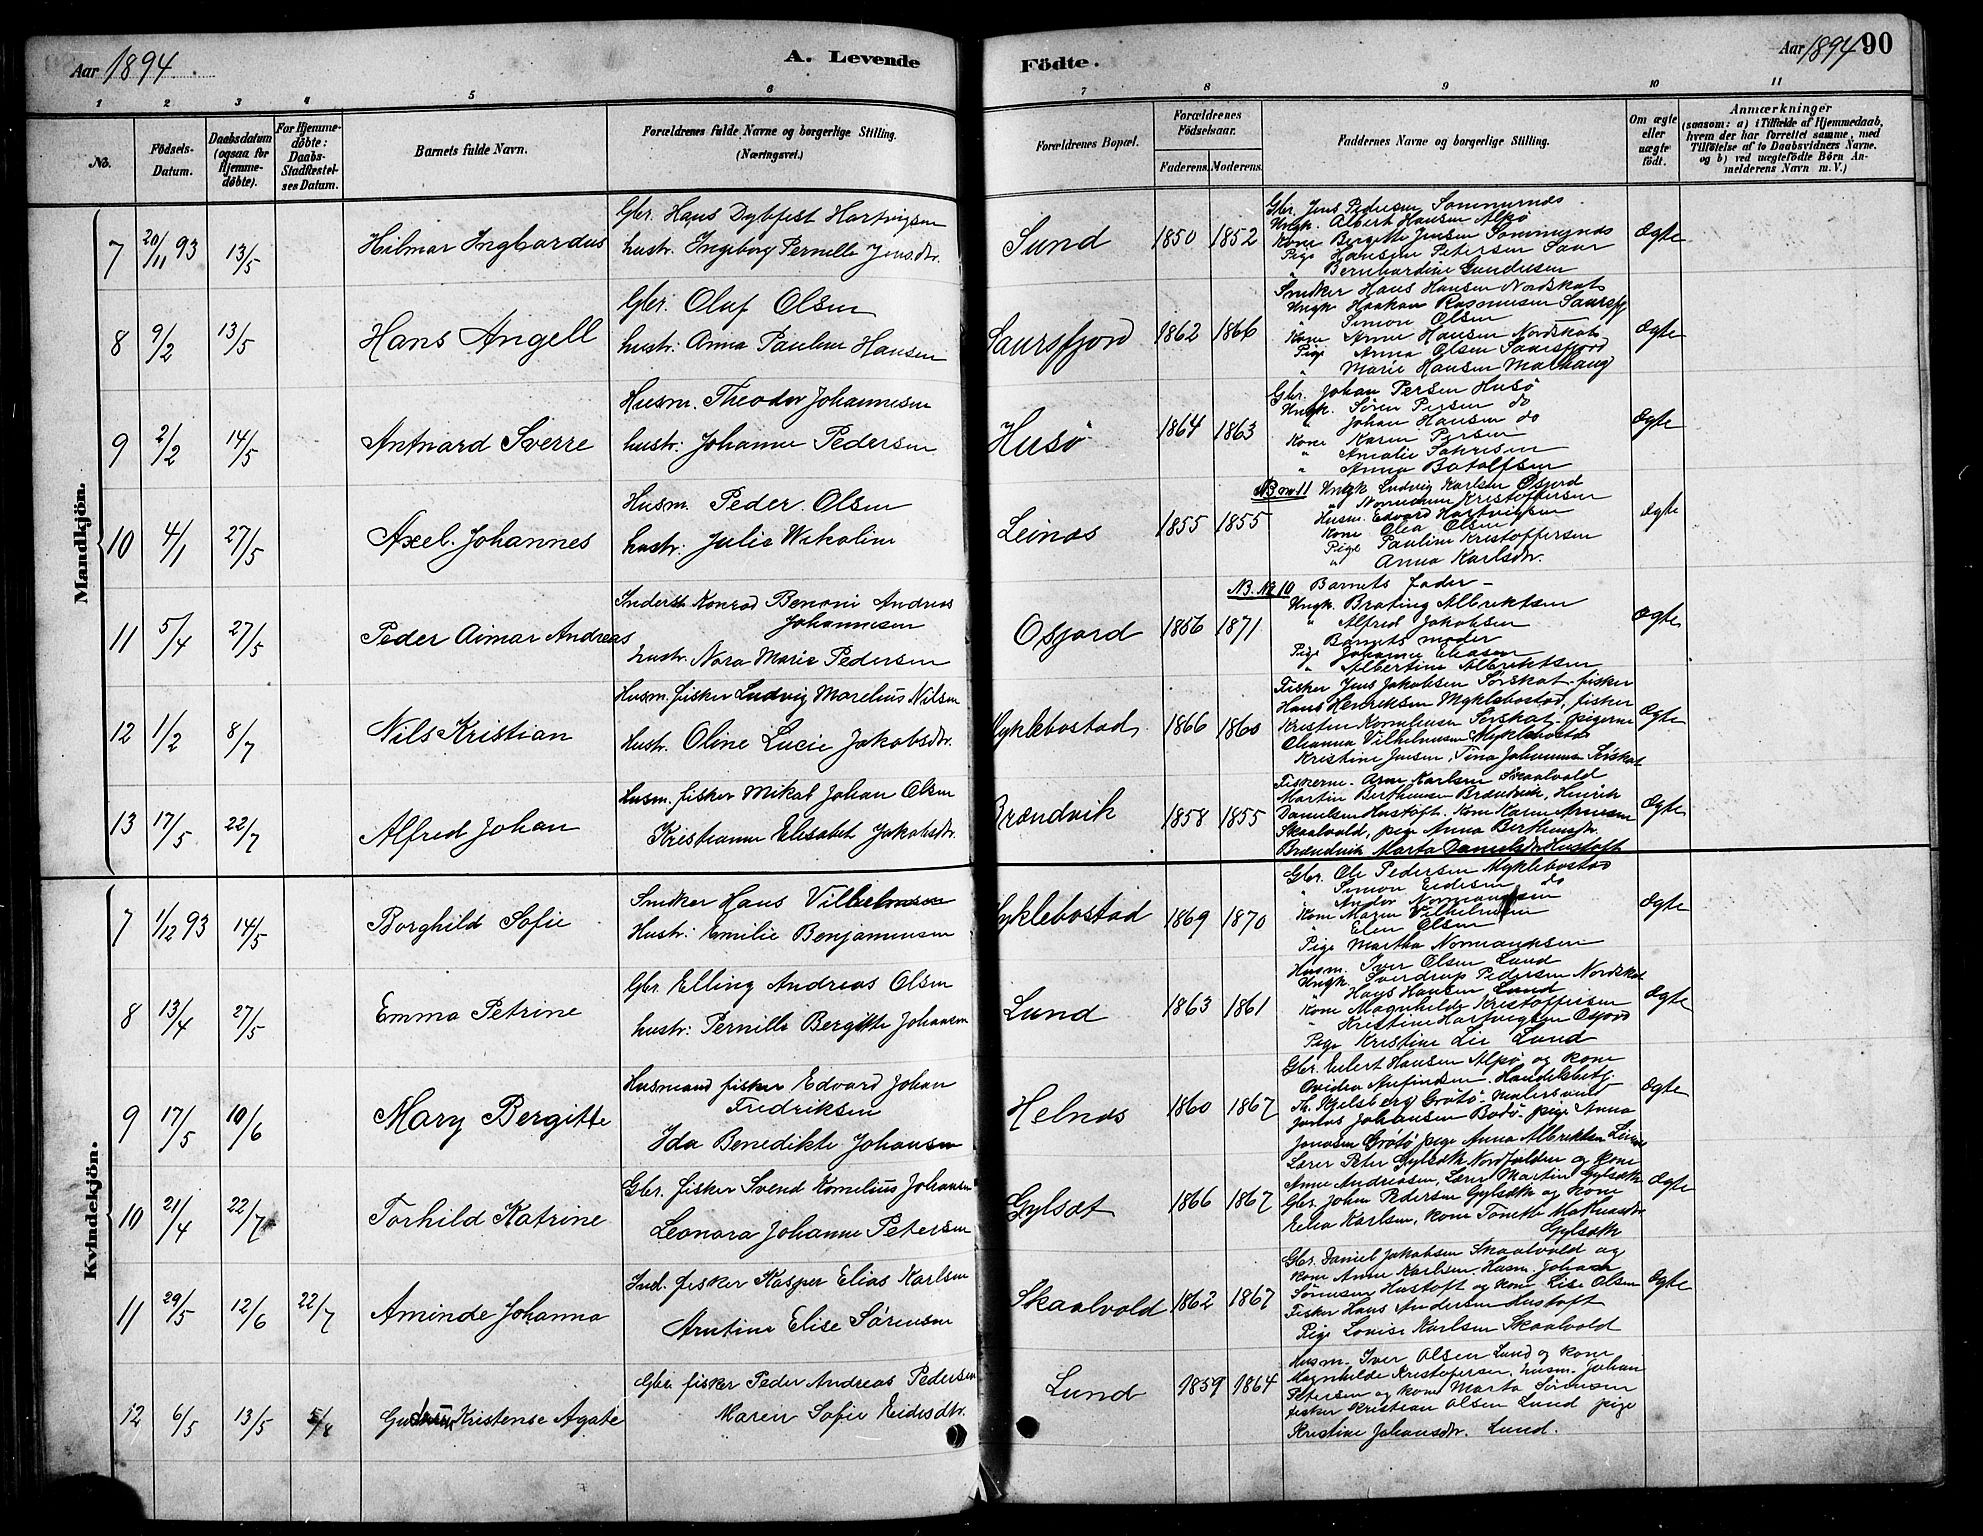 Aar 1894
A. Levende Födte.
Aar 1894 90
1 2 3 4 5 6 7 8 9 10 11
No.
Födsels-
Datum.
Daabsdatum
(ogsaa for
Hjemme-
döbte).
For Hjemme-
döbte:
Daabs-
Stadfæstel-
ses Datum.
Barnets fulde Navn.
Forældrenes fulde Navne og borgerlige Stilling.
(Næringsvei.)
Forældrenes Bopæl.
Forældrenes
Födselsaar.
Faderens. Moderens.
Faddernes Navne og borgerlige Stilling.
Om ægte
eller
uægte
födt.
Anmærkninger
(saasom: a) i Tilfælde af Hjemmedaab,
hvem der har forrettet samme, med
Tilföielse af to Daabsvidners Navne,
og b) ved uægtefödte Börn An-
melderens Navn m. V.)
Mandkjön.
7 20/11 93 13/5 Hilmar Ingbardus
Gbr. Hans Dybfest Hartvigsen
hustr. Ingeborg Pernille Jensdtr.
Sund 1850 1852
Gbr. Jens Pedersen Sommernes
Ungk. Albert Hansen Alpø
Kone Bergitte Jensen Sommernes
Pige Hansine Petersen Saur
" Bernhardine Gundersen
Ægte
8 9/2 13/5 Hans Angell
Gbr. Oluf Olsen
hustr: Anna Pauline Hansen
Saursfjord 1862 1866
Snedker Hans Hansen Nordskat
Ungk Haakon Rasmussen Saursfj
" Simon Olsen
Kone Anne Hansen Nordskat
Pige Anna Olsen Saursfjord
" Marie Hansen Marhaug
Ægte
9 2/2 14/5 Antnard Sverre
Husm. Theodor Johannesen
hustr: Johanne Pedersen
Husø 1864 1863
Gbr. Johan Persen Husø
Ungk. Søren Persen do
" Johan Hansen do
Kone Karen Persen
" Amalie
" Anna Batolfsen
Ægte
10 4/1 27/5 Axel Johannes
Husm. Peder Olsen
hustr: Julie Wikoline
Leines 1855 1855
NB no 11 Ungk Ludvig Karlsen Osjord
" Normann Kristoffersen
Husm. Edvard Hartvigsen
Kone Olea Olsen
Pige Pauline Kristoffersen
" Anna Karlsdtr.
Ægte
11 5/4 27/5 Peder Aimar Andreas
Inderst Konrad Benoni Andreas
Johannesen
hustr. Nora Marie Pedersen
Osjord 1856 1871
NB. No 10 Barnets Fader –
Ungk. Brating Albrektsen
" Alfred Jakobsen
Barnets moder
Pige Johanne Eliasen
" Albertine Albrektsen
Ægte
12 1/2 8/7 Nils Kristian
Husm. fisker Ludvig Marelius Nilsen
Hustr. Oline Lucie Jakobsdtr.
Myklebostad 1866 1860
Fisker Jens Jakobsen Sørskat. fisker
Hans Henriksen Myklebostad, fisker
Kristen Kornelissen Sørskat. pigerne
Oleanna Vilhelmsen Myklebostad
Kristine Jensen, Tina Johannsen Sørskat
Ægte
13 17/5 22/7 Alfred Johan
Husm. fisker Mikal Johan Olsen
Kristianne Elisabet Jakobsdtr.
Brændvik 1858 1855
Fiskerne. Arne Karlsen Skaalvold
Martin Berthensen Brændvik, Henrik
Danielsen Hustoft. Kone Karen Arnesen
Skaalvold, pige Anna Berthensdtr.
Brændvik Marta Danielsdtr Hustoft
Ægte
Kvindekjön.
7 1/12 93 14/5 Borghild Sofie
Snedker Hans Vilhelmsen
Hustr: Emilie Benjaminsen
Myklebostad 1869 1870
Gbr. Ole Pedersen Myklebostad
" Simon Eidesen do
" Andor Normannsen
Kone Maren Vilhelmsen
" Elen Olsen
Pige Martha Normannsen
Ægte
8 13/4 27/5 Emma Petrine
Gbr. Elling Andreas Olsen
hustr: Pernille Bergitte Johansen
Lund 1863 1861
Husm. Iver Olsen Lund
Ungk. Sverdrup Pedersen Nordskat
" Hans Hansen Lund
Kone Magnhilde Kristoffersen
" Kristine Hartvigsen Osjord
Pige Kristine Lie Lund
Ægte
9 17/5 10/6 Mary Bergitte
Husmand fisker Edvard Johan
Fredriksen
Ida Benedikte Johansen
Helnes 1860 1867
Gbr. Eilert Hansen Alpø og kone
Ovidea Anfindsen. Handelsbetj.
Th. Kjelsberg Grøtø. malersvend
Johansen Bodø. pige Anna
Jonassen Grøtø pige Anna Albrektsen Leines
Ægte
10 21/4 22/7 Torhild Katrine
Gbr. fisker Svend Kornelius Johansen
Leonora Johanne Petersen
Gylset 1866 1867
Lærer Peter Gylseth Nordfolden og kone
Anne Andreasen, Lærer Martin Gylseth
Gbr. Johan Pedersen Gylseth og kone
Elea Karlsen, kone Tonette Mathiasdtr
Gylseth
Ægte
11 29/5 12/6 22/7 Aminde Johanna
Ind. fisker Kasper Elias Karlsen
Arntine Elise Sørensen
Skaalvold 1862 1867
Gbr. Daniel Jakobsen Skaalvold og
kone Anne Karlsen. Husm. Johan
Sørensen Hustoft og kone Lise Olsen
Fisker Hans Andersen Hustoft
Pige Lovise Karlsen Skaalvold
Ægte
12 6/5 13/5 5/8 Gudrun Kristense Agate
Gbr fisker Peder Andreas Pedersen
Maren Sofie Eidesdtr.
Lund 1859 1864
Husm. Iver Olsen Lund og kone
Magnhilde Kristofersen, husm. Johan
Petersen og kone Marta Sørensen
fisker Kristian Olsen Lund pige
Kristine Johansdtr. Lund.